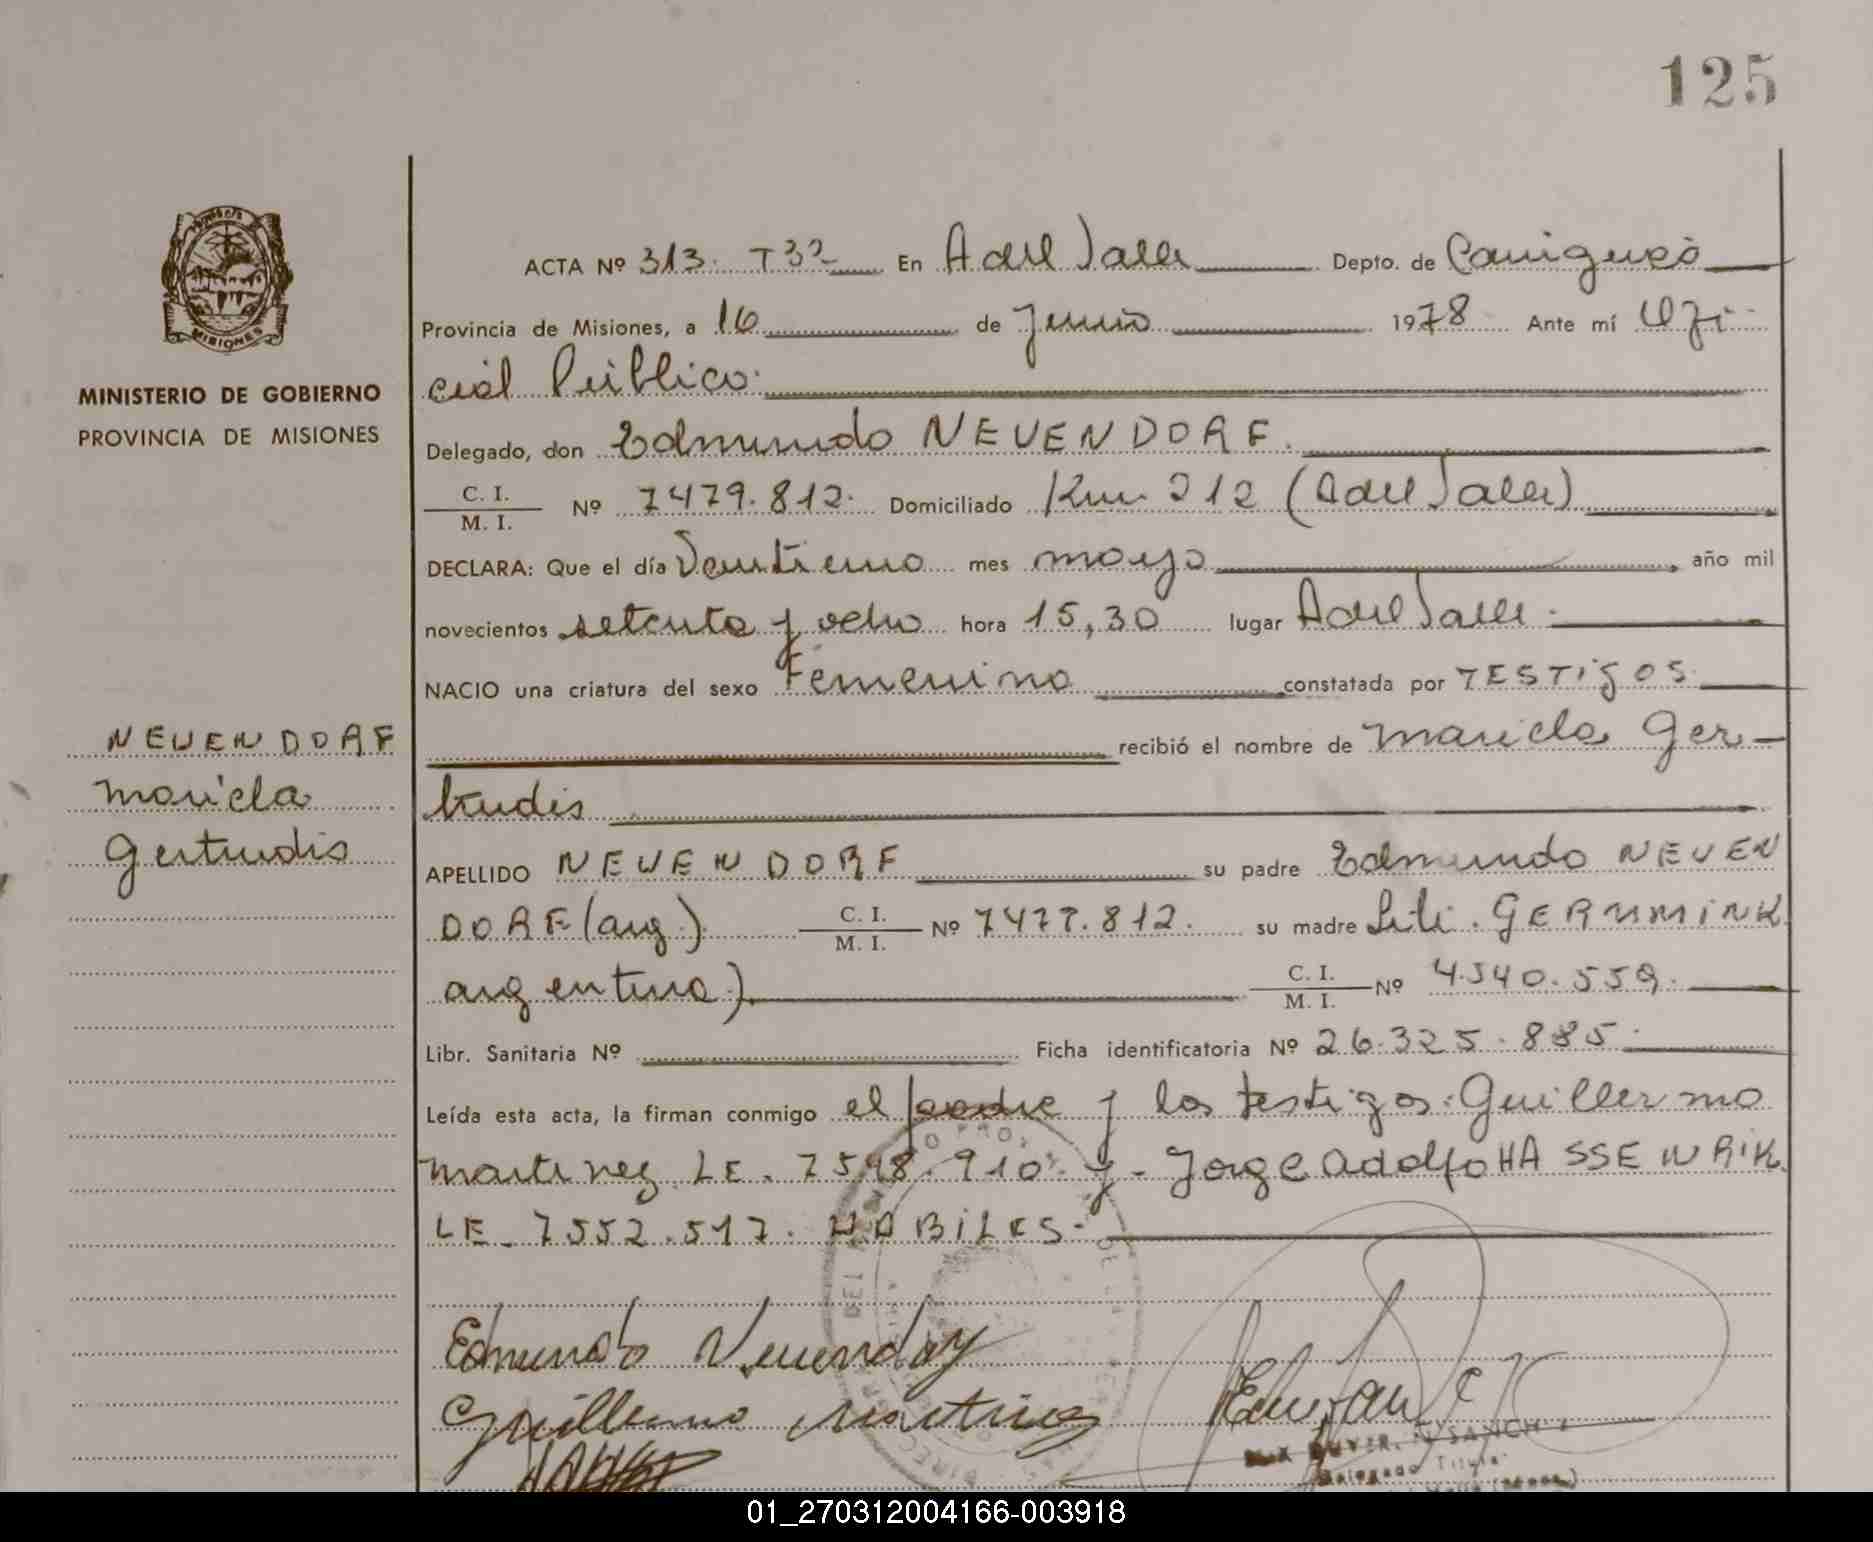 125
MISIONES
MINISTERIO DE GOBIERNO
PROVINCIA DE MISIONES
NEUENDORF
Mariela
Gertrudis
ACTA Nº 313. T3º En A del Valle Depto. de Cainguás
Provincia de Misiones, a 16 de Junio 1978 Ante mí Ofi-
cial Público.
Delegado, don Edmundo NEUENDORF.
C. I. / M. I. Nº 7479.812. Domiciliado Km. 212 (A del Valle)
DECLARA: Que el día Veintiuno mes mayo, año mil
novecientos setenta y ocho hora 15,30 lugar A del Valle.
NACIO una criatura del sexo Femenino constatada por TESTIGOS
recibió el nombre de Mariela Ger-
trudis
APELLIDO NEUENDORF su padre Edmundo NEUEN
DORF (arg.) C. I. / M. I. Nº 7477.812. su madre Lili.
argentina) C. I. / M. I. Nº
Libr. Sanitaria Nº Ficha identificatoria Nº 26.325.885.
Leída esta acta, la firman conmigo el padre y los testigos: Guillermo
Martinez LE. 7548.910. y - Jorge Adolfo HASSENRIK.
LE. 7552.517. HABILES-
Edmundo Neuendorf
Guillermo Martinez
Delegado Titular
01_270312004166-003918